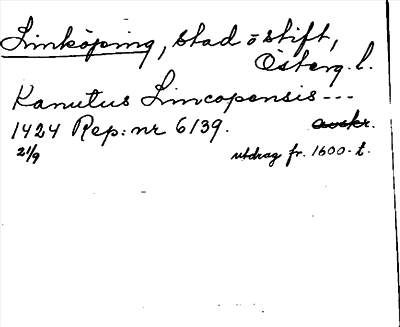 Linköping, stad o stift,
Österg. l.
Kanutus Lincopensis ---
1424 Rep: nr 6139. avskr.
21/9 utdrag fr. 1600-t.